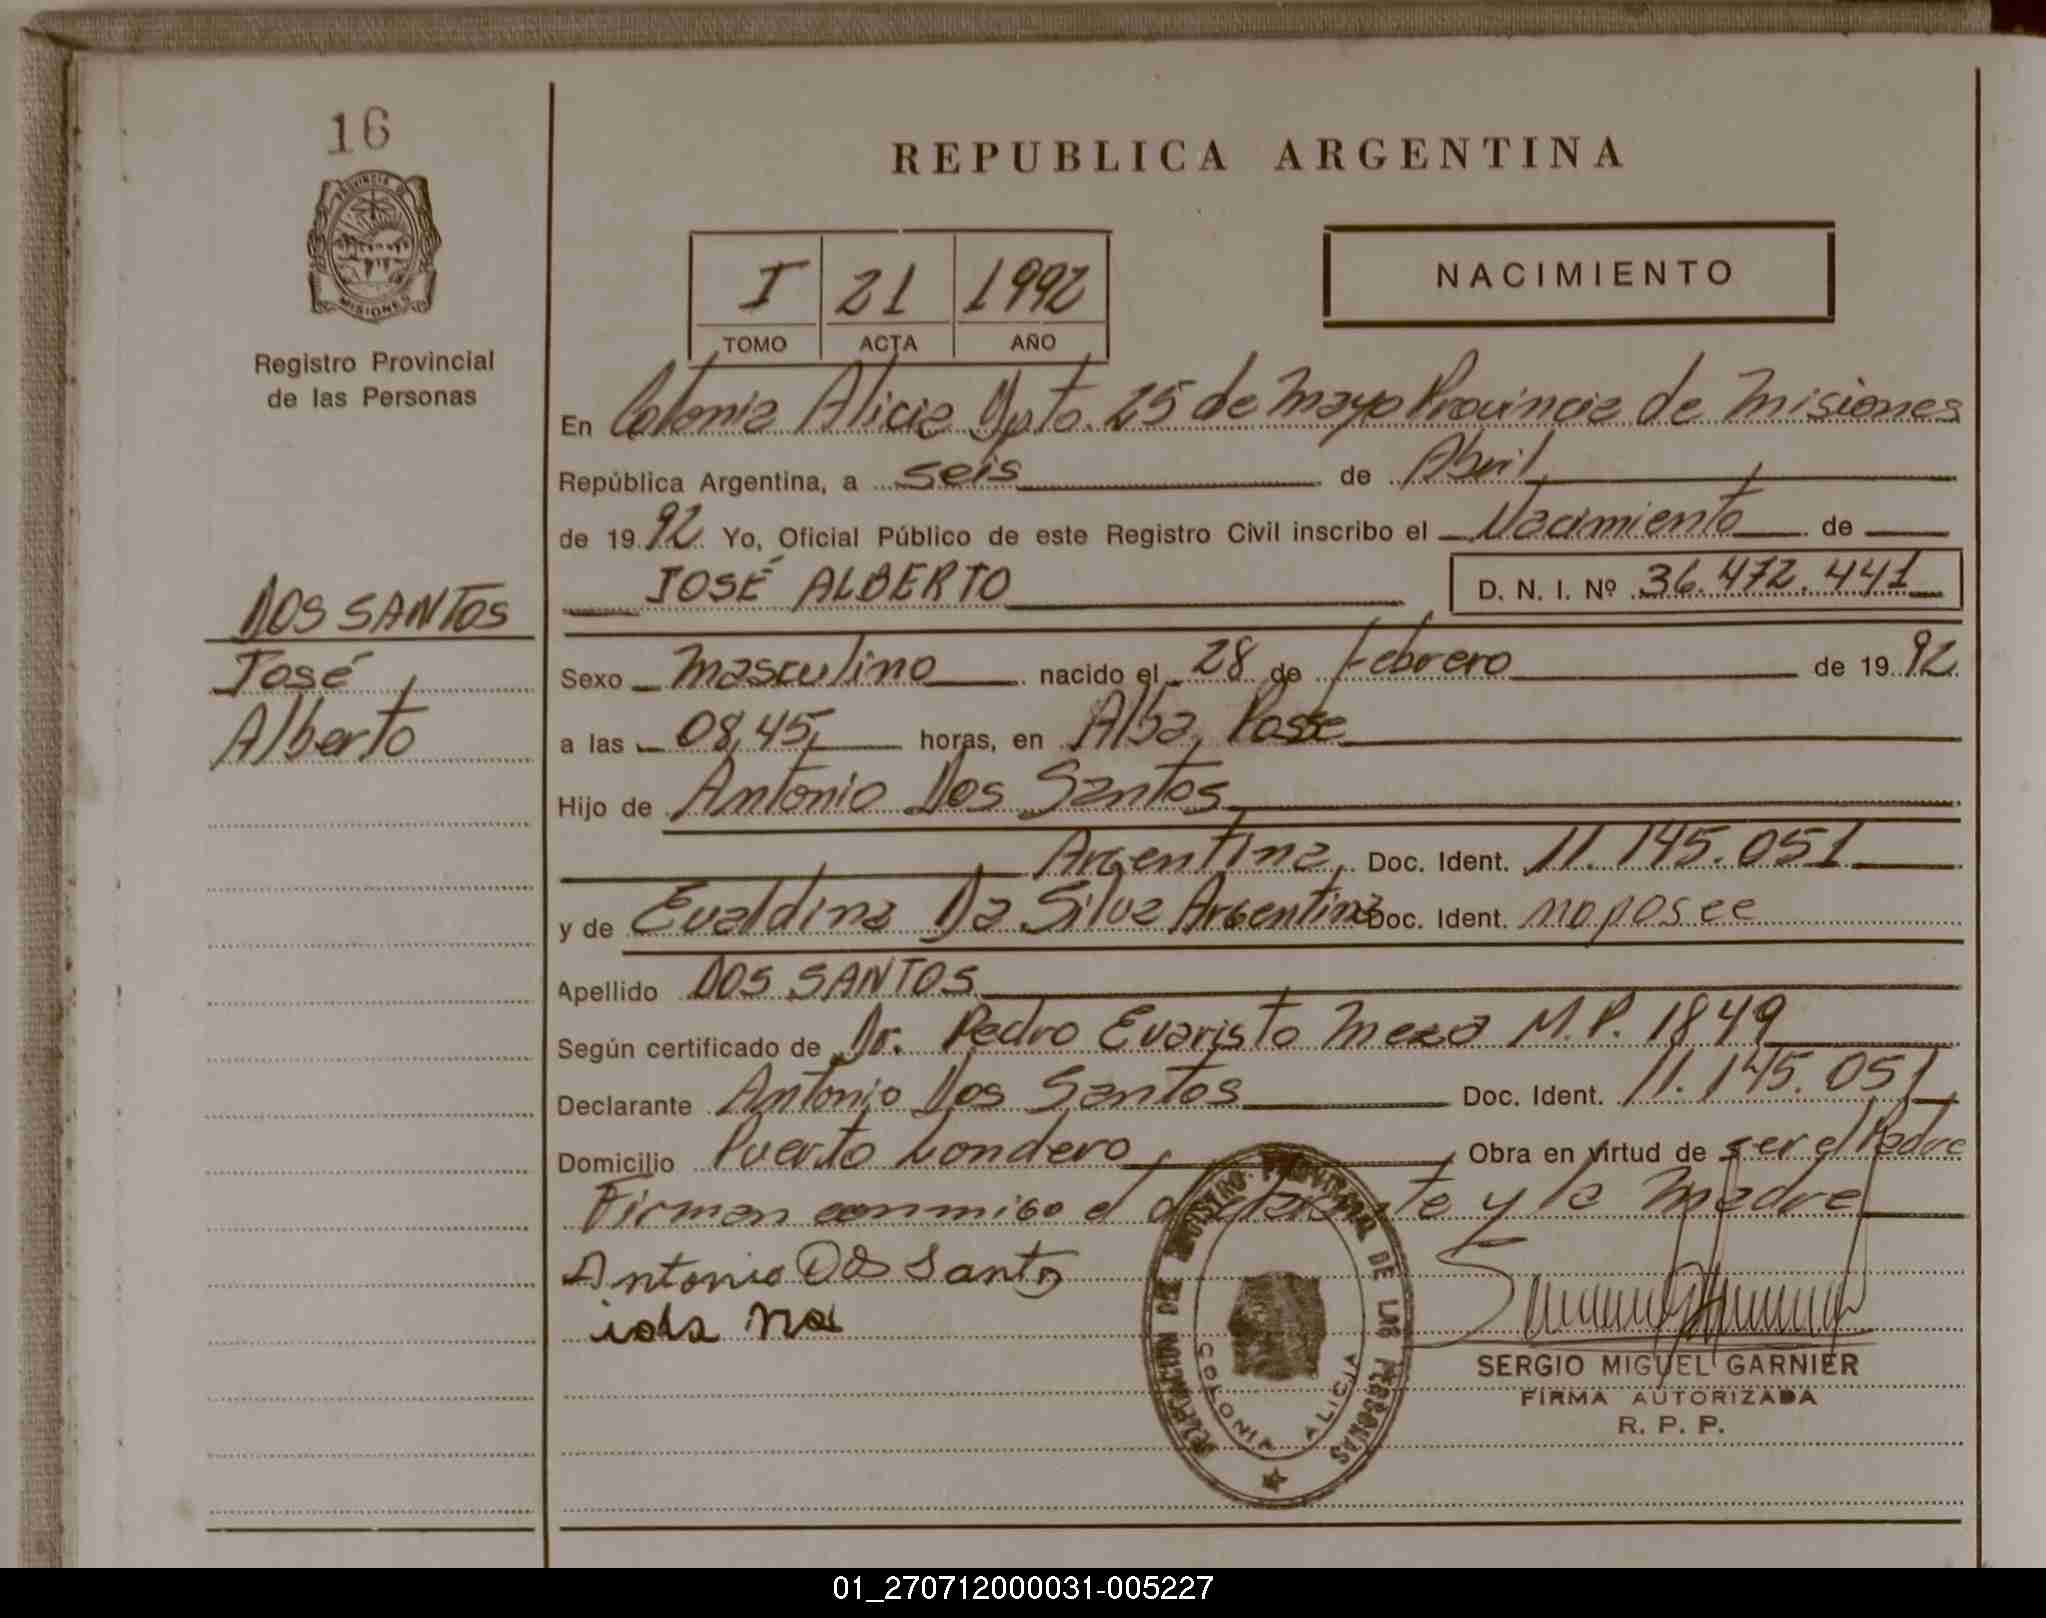 16
PROVINCIA DE
MISIONES
Registro Provincial
de las Personas
DOS SANTOS
José
Alberto
REPUBLICA ARGENTINA
I 21 1992
TOMO ACTA AÑO
NACIMIENTO
En Colonia Alicia Dpto. 25 de Mayo Provincia de Misiones
República Argentina, a seis de Abril
de 1992 Yo, Oficial Público de este Registro Civil inscribo el Nacimiento de
JOSÉ ALBERTO D. N. I. Nº 36.472.441
Sexo Masculino nacido el 28 de Febrero de 1992
a las 08,45, horas, en Alba Posse
Hijo de Antonio Dos Santos
Argentina, Doc. Ident. 11.145.051
y de Evaldina Da Silva Argentina Doc. Ident. no posee
Apellido DOS SANTOS
Según certificado de Dr. Pedro Evaristo Meza M.P. 1849
Declarante Antonio Dos Santos Doc. Ident. 11.145.051
Domicilio Puerto Londero Obra en virtud de ser el Padre
Firman conmigo el declarante y la Madre
Antonio Dos Santos
DELEGACION DEL REGISTRO PROVINCIAL DE LAS PERSONAS
COLONIA ALICIA
SERGIO MIGUEL GARNIER
FIRMA AUTORIZADA
R. P. P.
01_270712000031-005227